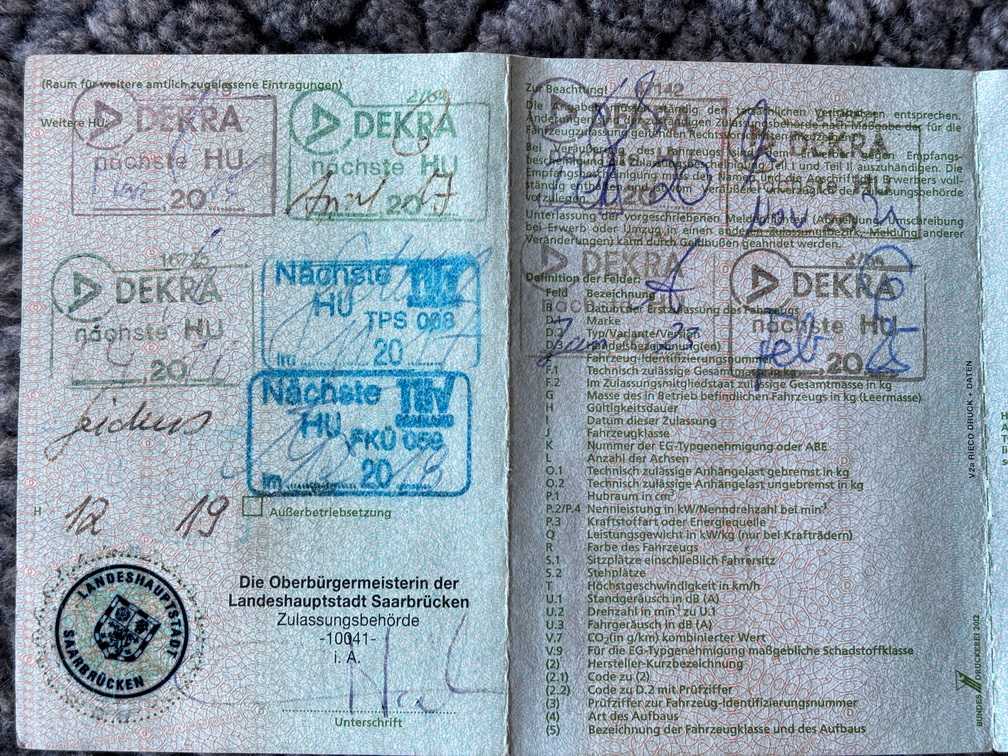 (Raum für weitere amtlich zugelassene Eintragungen)
Weitere HU:
DEKRA
nächste HU
20
DEKRA
nächste HU
April 2017
DEKRA
nächste HU
20
Nächste TÜV
HU
TPS 008
Im 20
Nächste TÜV
HU
FKÜ 059
Im 20 18
H
12 19
Außerbetriebsetzung
LANDESHAUPTSTADT
SAARBRÜCKEN
Die Oberbürgermeisterin der
Landeshauptstadt Saarbrücken
Zulassungsbehörde
-10041-
i. A.
Unterschrift
Zur Beachtung!
142
Die Angaben müssen ständig den tatsächlichen Verhältnissen entsprechen.
Änderungen sind der zuständigen Zulassungsbehörde nach Maßgabe der für die
Fahrzeugzulassung geltenden Rechtsvorschriften anzuzeigen.
Bei Veräußerung des Fahrzeugs sind dem Erwerber gegen Empfangs-
bescheinigung die Zulassungsbescheinigung Teil I und Teil II auszuhändigen. Die
Empfangsbescheinigung muss den Namen und die Anschrift des Erwerbers voll-
ständig enthalten und vom Veräußerer unverzüglich der Zulassungsbehörde
vorzulegen
Unterlassung der vorgeschriebenen Meldepflichten (Abmeldung, Umschreibung
bei Erwerb oder Umzug in einen anderen Zulassungsbezirk, Meldung anderer
Veränderungen) kann durch Geldbußen geahndet werden.
DEKRA
nächste HU
DEKRA
nächste HU
DEKRA
nächste HU
Feb 20
Definition der Felder:
Feld Bezeichnung
B Datum der Erstzulassung des Fahrzeugs
D.1 Marke
D.2 Typ/Variante/Version
D.3 Handelsbezeichnung(en)
E Fahrzeug-Identifizierungsnummer
F.1 Technisch zulässige Gesamtmasse in kg
F.2 Im Zulassungsmitgliedstaat zulässige Gesamtmasse in kg
G Masse des in Betrieb befindlichen Fahrzeugs in kg (Leermasse)
H Gültigkeitsdauer
I Datum dieser Zulassung
J Fahrzeugklasse
K Nummer der EG-Typgenehmigung oder ABE
L Anzahl der Achsen
O.1 Technisch zulässige Anhängelast gebremst in kg
O.2 Technisch zulässige Anhängelast ungebremst in kg
P.1 Hubraum in cm³
P.2/P.4 Nennleistung in kW/Nenndrehzahl bei min⁻¹
P.3 Kraftstoffart oder Energiequelle
Q Leistungsgewicht in kW/kg (nur bei Krafträdern)
R Farbe des Fahrzeugs
S.1 Sitzplätze einschließlich Fahrersitz
S.2 Stehplätze
T Höchstgeschwindigkeit in km/h
U.1 Standgeräusch in dB (A)
U.2 Drehzahl in min⁻¹ zu U.1
U.3 Fahrgeräusch in dB (A)
V.7 CO₂(in g/km) kombinierter Wert
V.9 Für die EG-Typgenehmigung maßgebliche Schadstoffklasse
(2) Hersteller-Kurzbezeichnung
(2.1) Code zu (2)
(2.2) Code zu D.2 mit Prüfziffer
(3) Prüfziffer zur Fahrzeug-Identifizierungsnummer
(4) Art des Aufbaus
(5) Bezeichnung der Fahrzeugklasse und des Aufbaus
V.2a RIECO DRUCK + DATEN
BUNDESDRUCKEREI 2012